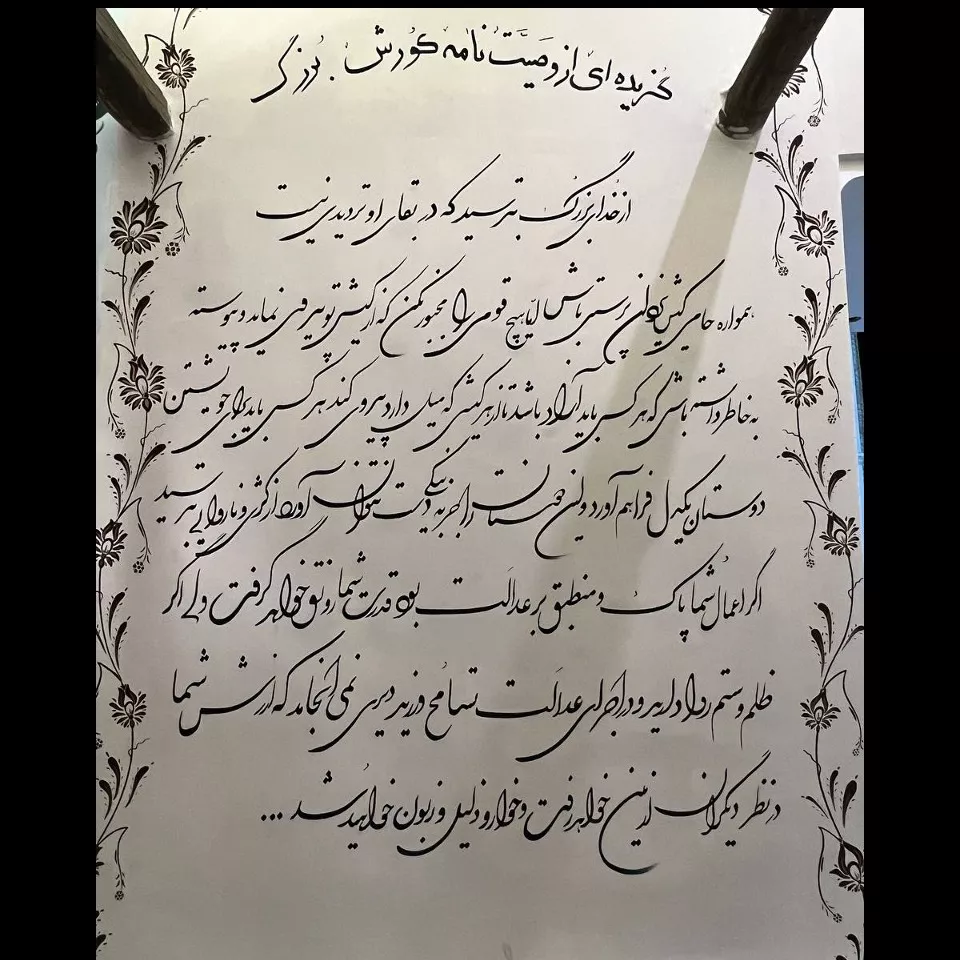 گزیده ای از وصیّت نامه کوروش بزرگ
از خدای بزرگ بترسید که در بقای او تردیدی نیست
همواره حامی کیش یزدان پرستی باش امّا هیچ قومی را مجبور نکن که از کیش تو پیروی نماید و پیوسته
به خاطر داشته باش که هر کسی باید آزاد باشد تا از هر کیشی که میل دارد پیروی کند هر کس باید برای خویشتن
دوستان یکدل فراهم آورد و این دوستان را جز به نیکی به دست نتوان آورد از کژی و ناروایی بترسید
اگر اعمال شما پاک و منطبق بر عدالت بود قدرت شما رونق خواهد گرفت ولی اگر
ظلم و ستم روا دارید و در اجرای عدالت تسامح ورزید دیری نمی انجامد که ارزش شما
در نظر دیگران از بین خواهد رفت و خوار و ذلیل و زبون خواهید شد ...